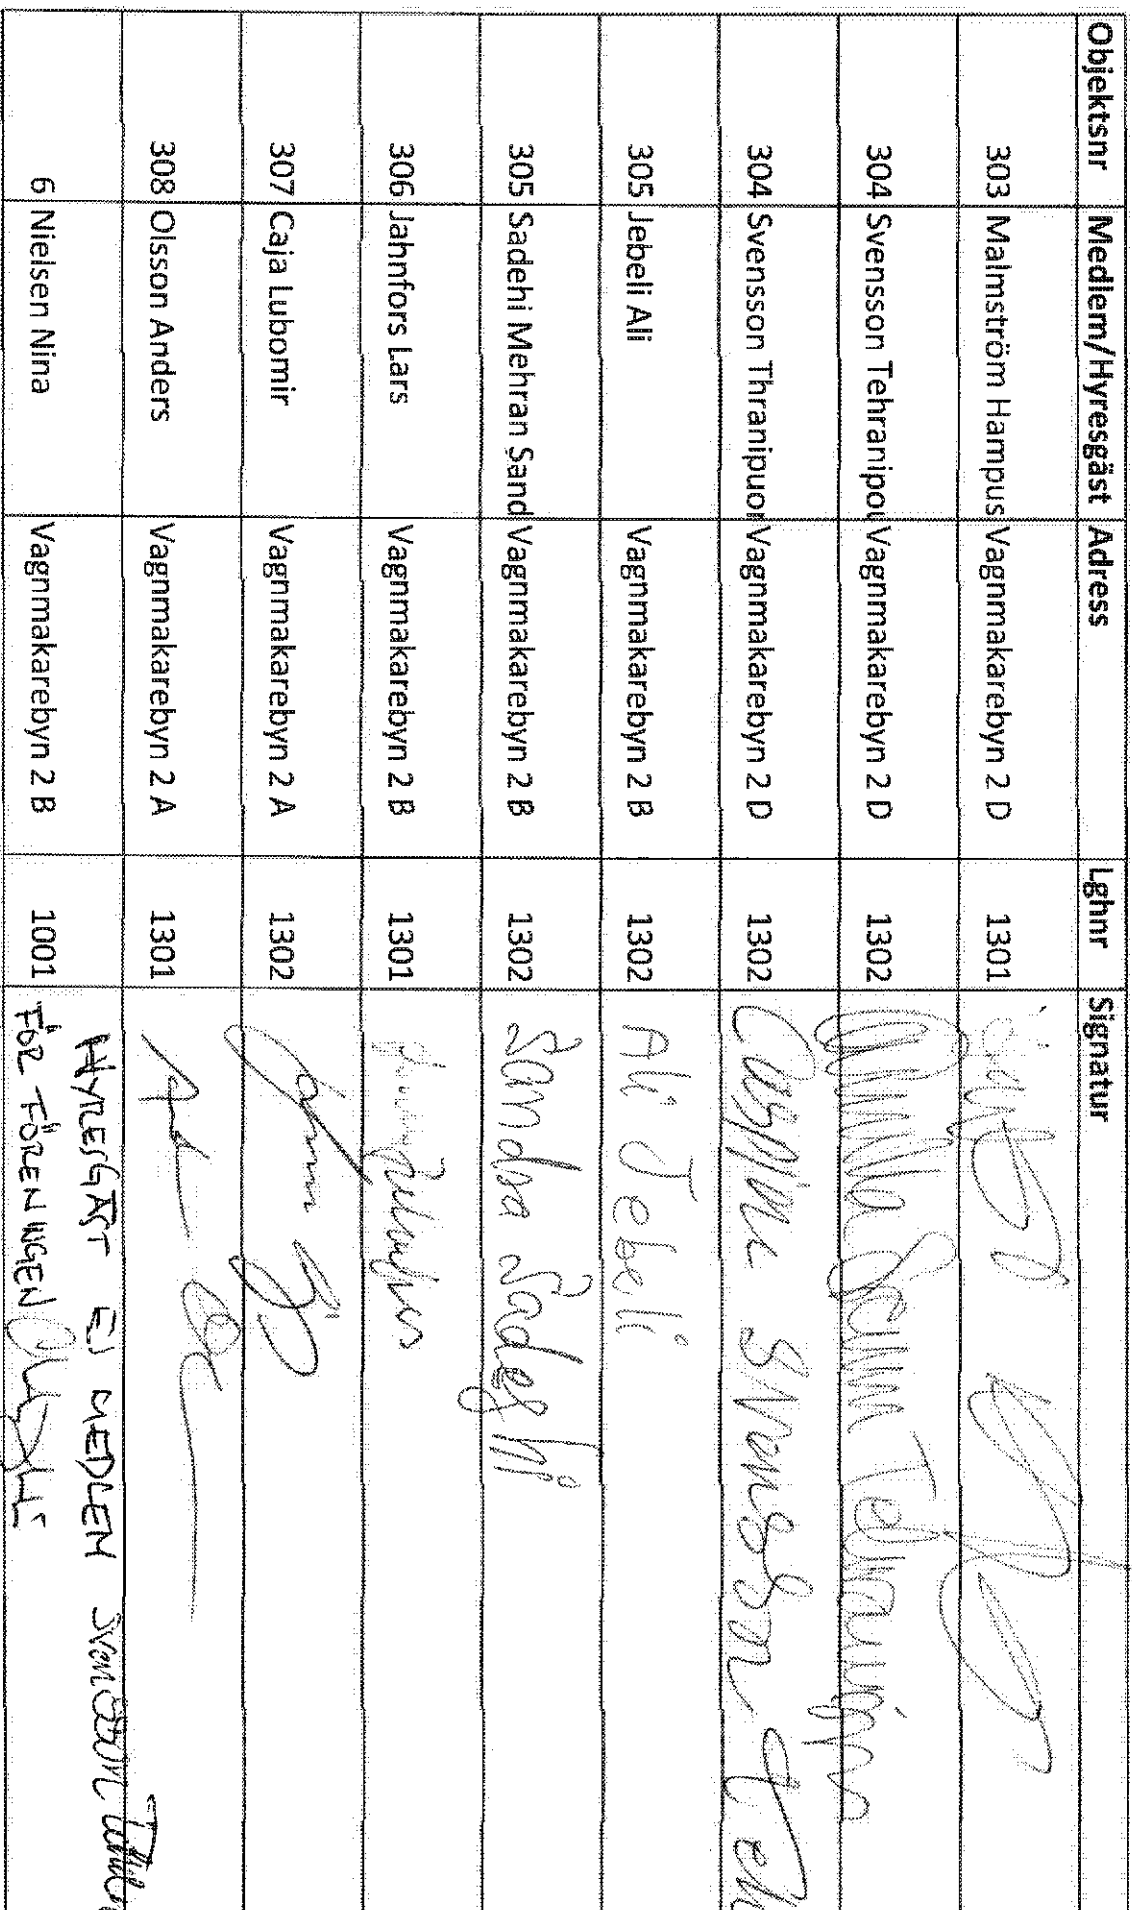 Objektsnr Medlem/Hyresgäst Adress Lghnr Signatur
303 Malmström Hampus Vagnmakarebyn 2 D 1301
304 Svensson Tehranipou Vagnmakarebyn 2 D 1302
304 Svensson Thranipuor Vagnmakarebyn 2 D 1302 Caspine Svensson Teh
305 Jebeli Ali Vagnmakarebyn 2 B 1302 Ali Jebeli
305 Sadehi Mehran Sand Vagnmakarebyn 2 B 1302 Sandra Sadeghi
306 Jahnfors Lars Vagnmakarebyn 2 B 1301
307 Caja Lubomir Vagnmakarebyn 2 A 1302
308 Olsson Anders Vagnmakarebyn 2 A 1301
HYRESGÄST EJ MEDLEM
6 Nielsen Nina Vagnmakarebyn 2 B 1001 FÖR FÖRENINGEN